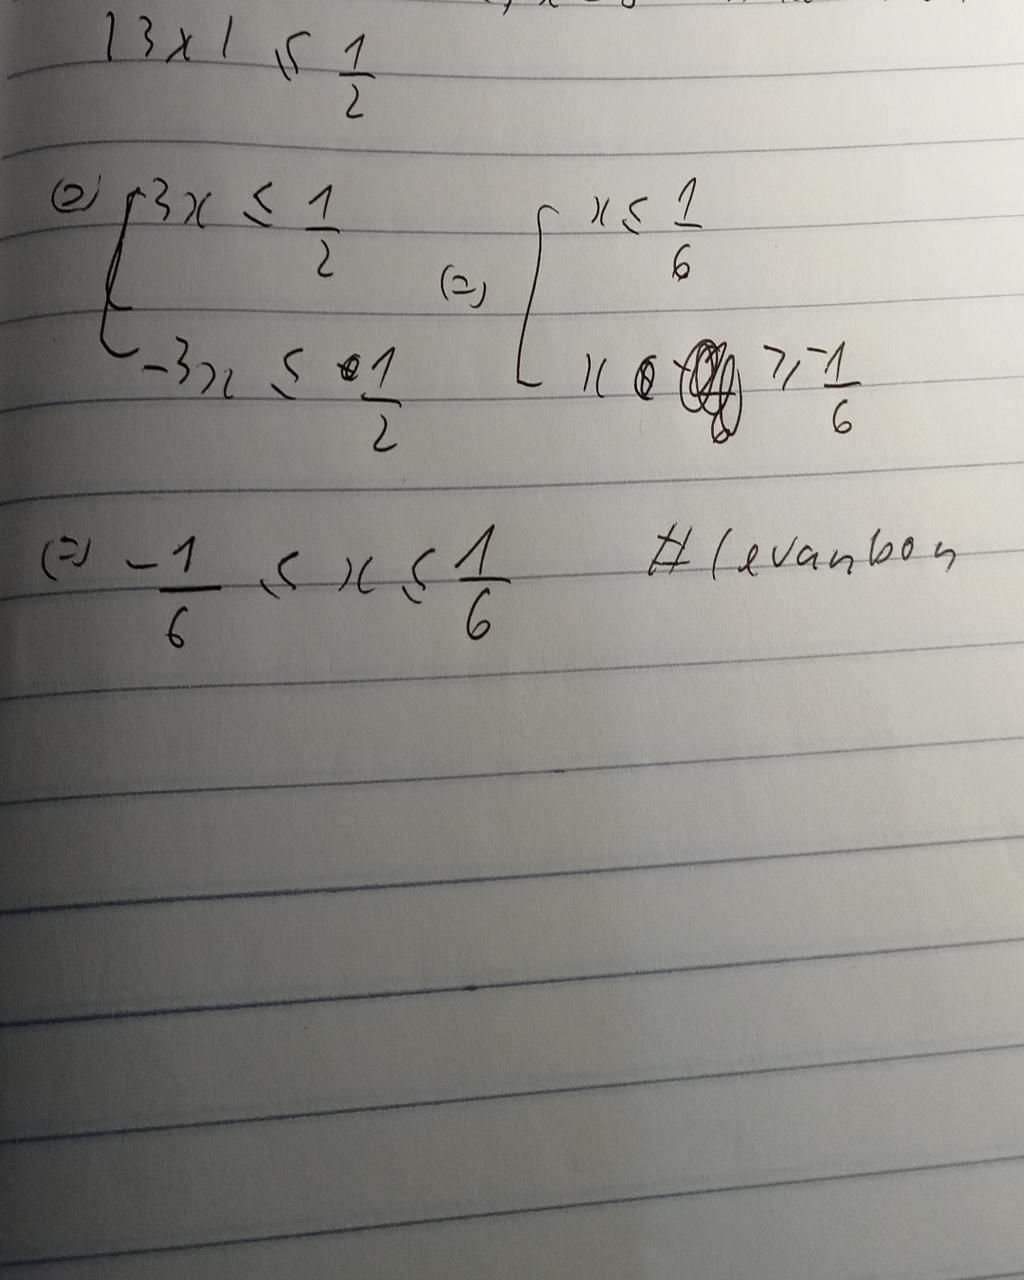 |3x| ≤ 1/2
(=) [ 3x ≤ 1/2 (=) [ x ≤ 1/6
-3x ≤ 1/2 x ≥ -1/6
(=) -1/6 ≤ x ≤ 1/6 #levanbon